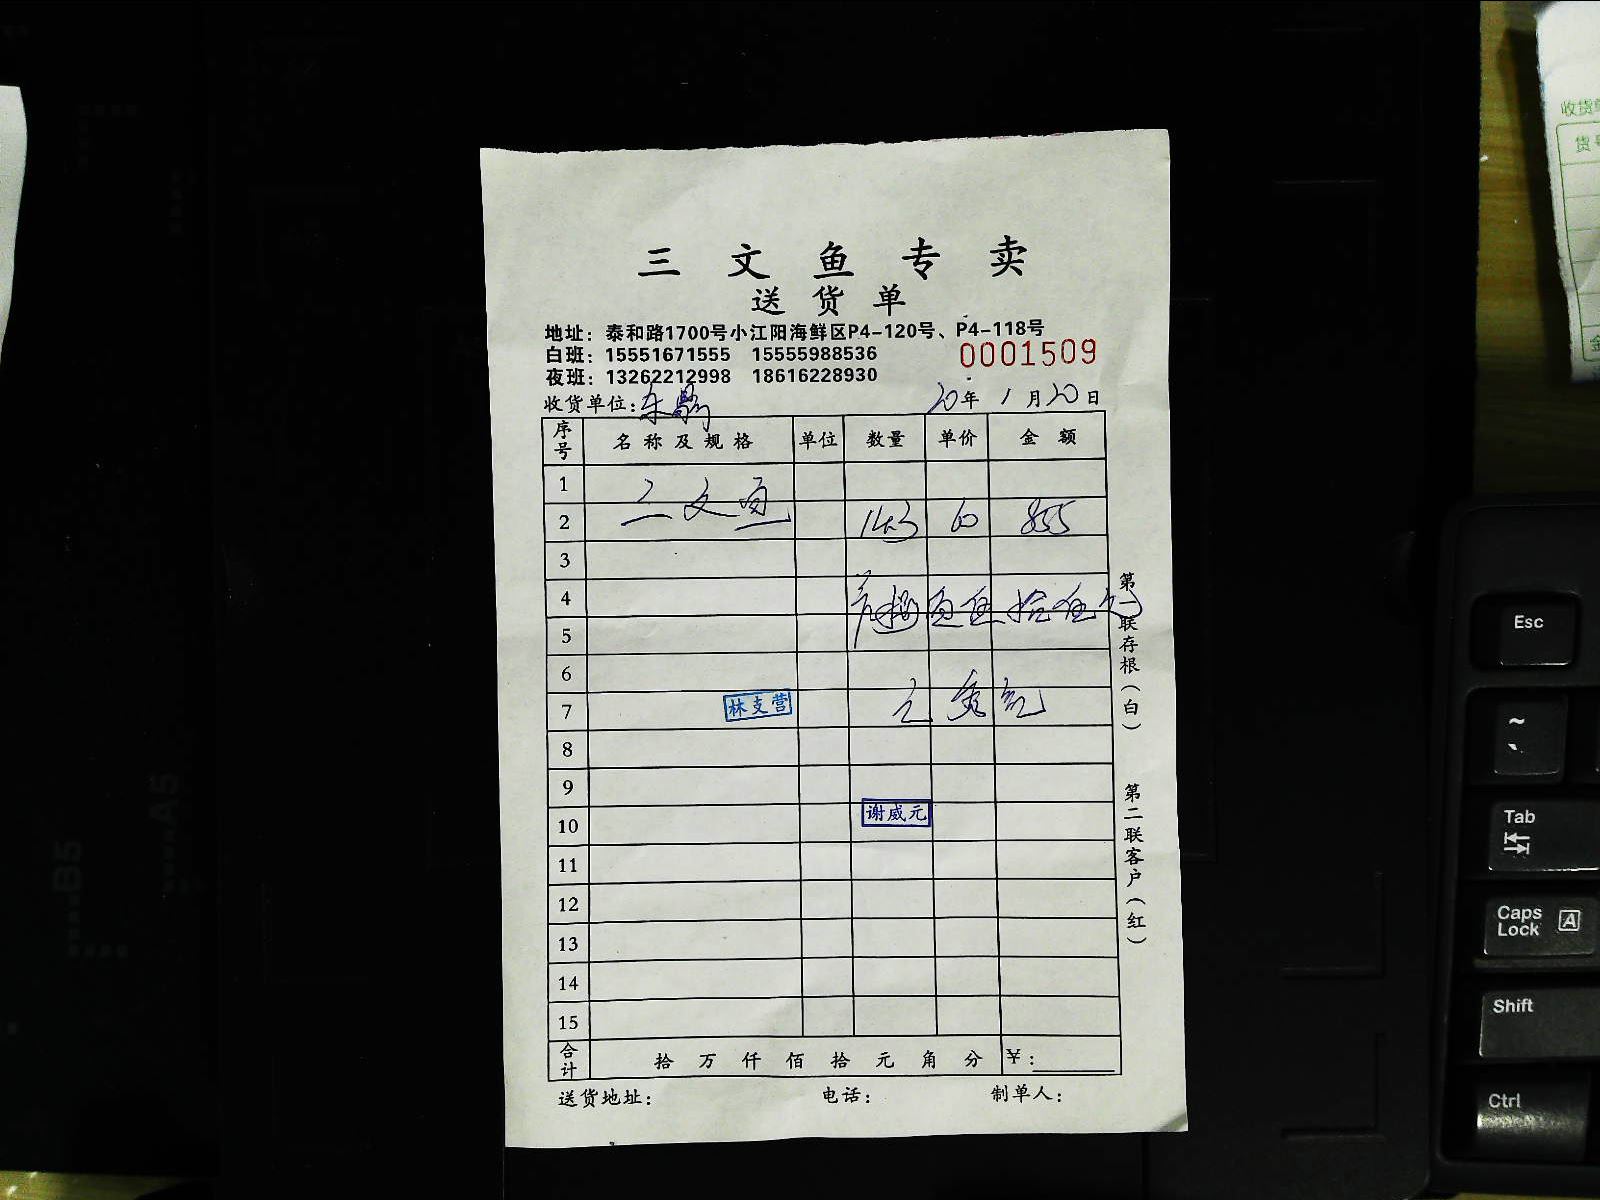 三文鱼专卖
送货单
地址：泰和路1700号小江阳海鲜区P4-120号、P4-118号
白班：15551671555 15555988536
0001509
夜班：13262212998 18616228930
收货单位：
20年1月20日
序号 名称及规格 单位 数量 单价 金额
1
2 三文鱼 60 855
3
4
5
6
7 林支营
8
9
10 谢威元
11
12
13
14
15
合计 拾万仟佰拾元角分 ￥：
送货地址： 电话： 制单人：
第一联存根（白）
第二联客户（红）
收货单
货号
金
Esc
~
`
Tab
Caps Lock A
Shift
Ctrl
B5
A5